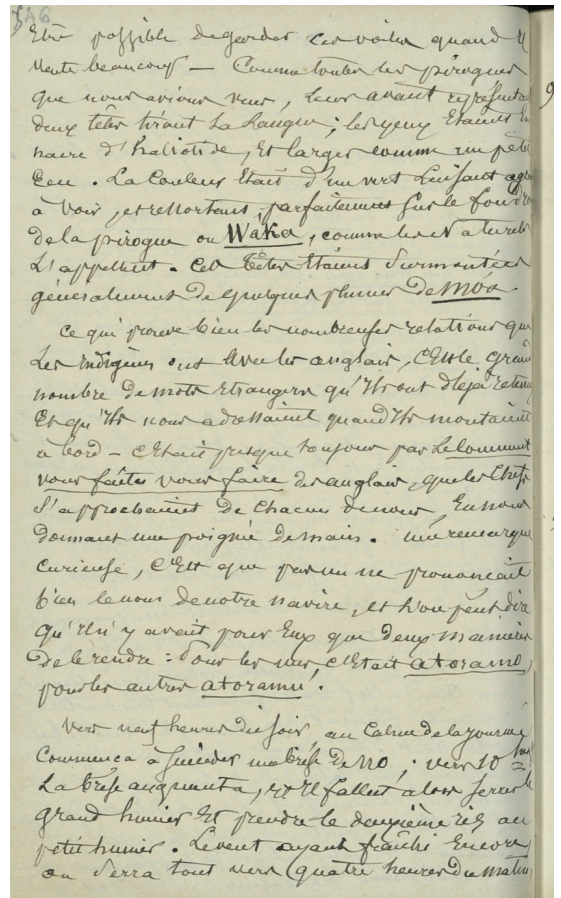 346
Etre possible de garder ces voiles quand il
vente beaucoup — Comme toutes les pirogues
que nous avions vues, leurs avant représentai
deux têtes tirant la Langue ; les yeux Etaient en
nacre d'haliotide, Et larges comme un petit
Ecu. La Couleur Etait d'un vert luisant agré
à voir, et ressortant parfaitement sur le fond
de la pirogue ou Waka, comme les Naturels
L'appellent. Ces têtes Etaient surmontées
généralement de quelques plumes de moa.
Ce qui prouve bien les nombreuses relations que
Les Indigènes ont Avec les anglais, C'Est le grand
nombre de mots Etrangers qu'Ils ont déjà retenu
Et qu'Ils nous adressaient quand Ils montaient
à bord — C'Etait presque toujours par Le Comment
vous faites vous faire des anglais, que les Chefs
s'approchaient de chacun de nous, En nous
donnant une poignée de main. une remarque
curieuse, C'Est que pas un ne prononçait
bien le nom de notre navire, et l'on peut dire
qu'Il n'y avait pour Eux que deux manières
de le rendre : Pour les uns, C'Etait atoramo,
pour les autres atoramu.
Vers neuf heures du soir, au Calme de la journée
Commença à succéder une brise de NO ; vers 10 hres
La brise augmenta, Et Il fallut alors serrer le
grand hunier Et prendre le deuxième ris au
petit hunier. Le vent ayant fraîchi Encore,
on serra tout vers quatre heures du matin,